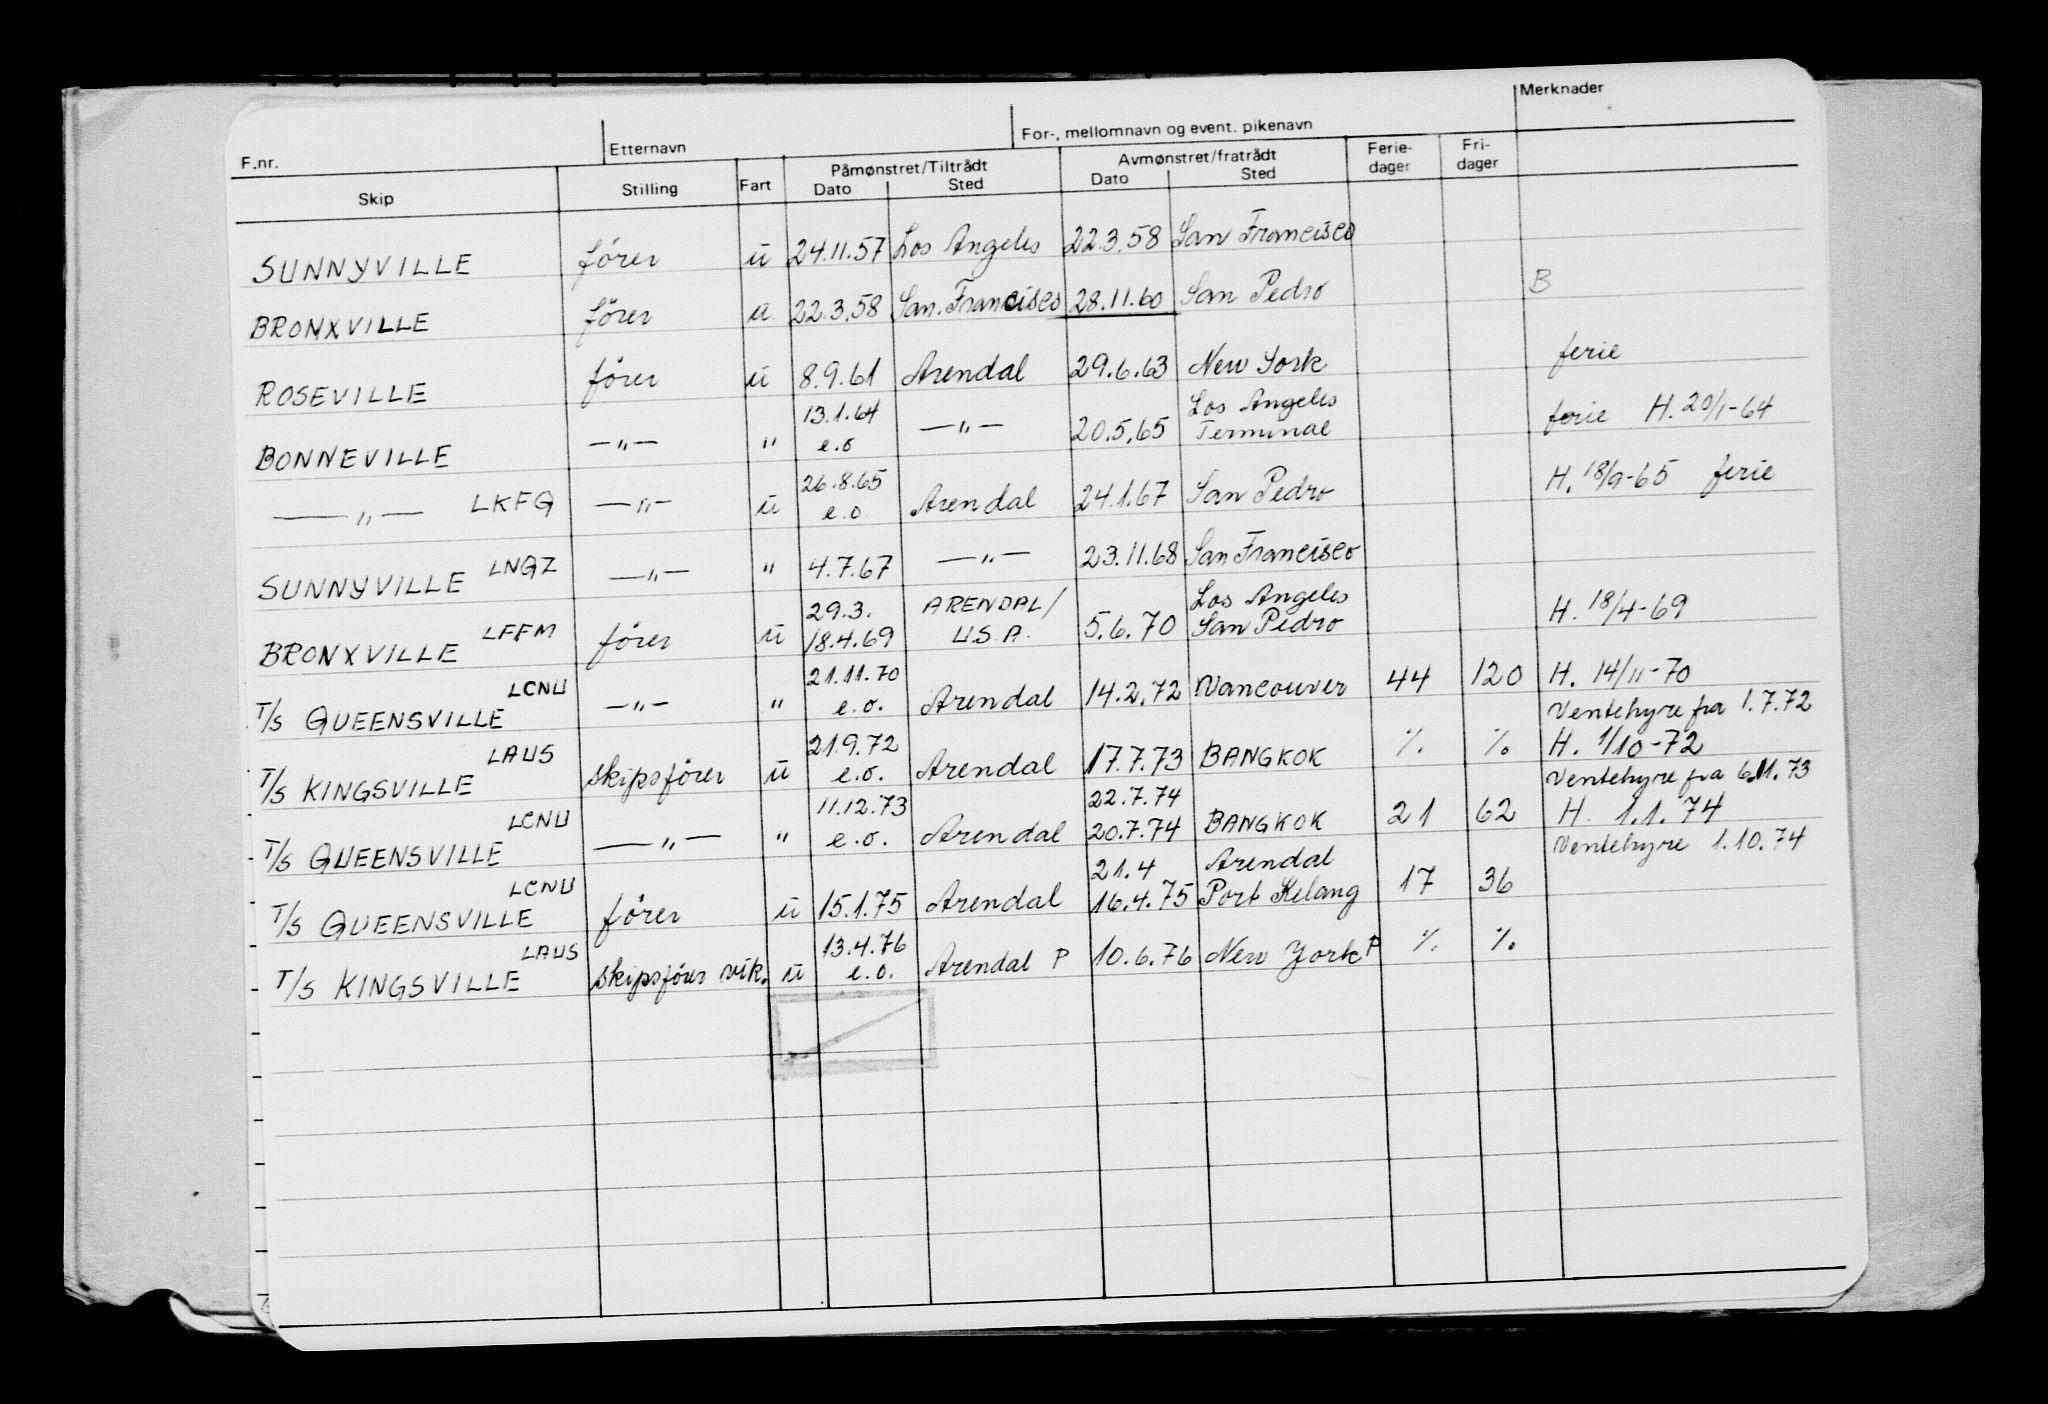 F.nr. Etternavn For-, mellomnavn og event. pikenavn Merknader
Skip Stilling Fart Påmønstret/Tiltrådt Avmønstret/fratrådt Ferie- Fri-
Dato Sted Dato Sted dager dager
SUNNYVILLE fórer ū 24.11.57 Los Angeles 22.3.58 San Francisco
BRONXVILLE fórer u. 22.3.58 San. Francisco 28.11.60 San Pedro B
ROSEVILLE fórer ū 8.9.61 Arendal 29.6.63 New York ferie
BONNEVILLE —"— " 13.1.64 e.o —"— 20.5.65 Los Angeles Terminal ferie H. 20/1-64
—"— LKFG —"— ū 26.8.65 e.o. Arendal 24.1.67 San Pedro H. 18/9-65 ferie
SUNNYVILLE LNGZ —"— " 4.7.67 —"— 23.11.68 San Francisco
BRONXVILLE LFFM fórer ū 29.3. 18.4.69 ARENDAL/ U.S.A. 5.6.70 Los Angeles San Pedro H. 18/4-69
T/S QUEENSVILLE LCNU —"— " 21.11.70 e.o. Arendal 14.2.72 Vancouver 44 120 H. 14/11-70
Ventehyre fra 1.7.72
T/S KINGSVILLE LAUS skipsfórer ū 21.9.72 e.o. Arendal 17.7.73 BANGKOK % % H. 1/10-72
Ventehyre fra 6.11.73
T/S QUEENSVILLE LCNU —"— " 11.12.73 e.o. Arendal 22.7.74 20.7.74 BANGKOK 21 62 H. 1.1.74
Ventehyre 1.10.74
T/S QUEENSVILLE LCNU fórer ū 15.1.75 Arendal 21.4 16.4.75 Arendal Port Kelang 17 36
T/S KINGSVILLE LAUS skipsfórer vik. ū 13.4.76 e.o. Arendal P 10.6.76 New York P % %